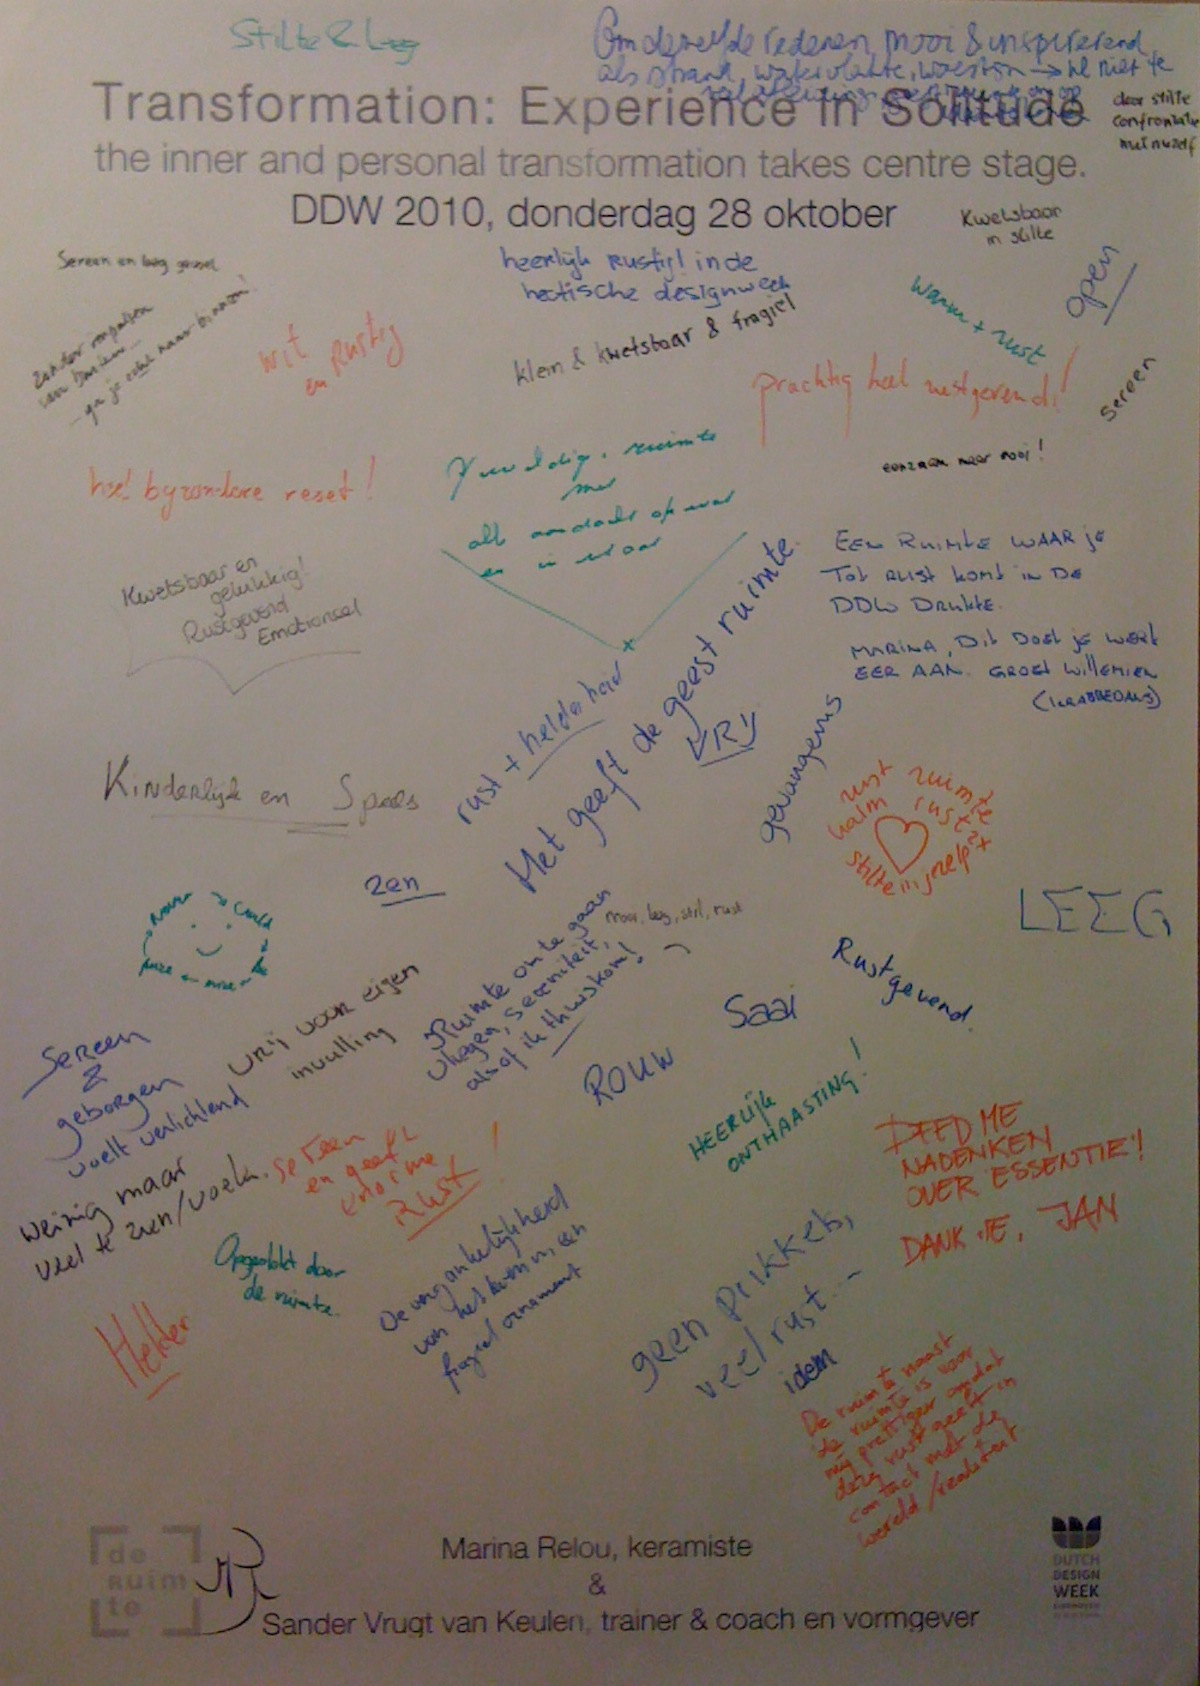 Stilte & leeg
Om dezelfde redenen mooi & inspirerend
als strand, watervlakte, woestijn → niet te
Transformation: Experience in Solitude
the inner and personal transformation takes centre stage.
DDW 2010, donderdag 28 oktober
door stilte
confrontatie
met nuzelf
Kwetsbaar
in stilte
Sereen en leeg gevoel
heerlijk rustig! in de
hectische designweek
open
warm + rust
ga je echt naar binnen!
wit
en Rustig
klein & kwetsbaar & fragiel
prachtig heel rustgevend!
sereen
eenzaam maar mooi!
heel byzondere reset!
Geweldig. ruimte
met
alle aandacht op wat
er in staat
Kwetsbaar en
gelukkig!
Rustgevend
Emotioneel
EEN RUIMTE WAAR je
TOT RUST komt in DE
DDW DRUKTE.
MARINA, Dit DOET je WERK
EER AAN. GROET Willemien
(KRABBEDANS)
rust + helderheid
Het geeft de geest ruimte.
VRIJ
gevangenis
Kinderlijk en Speels
rust ruimte
kalm rust
stilte in jezelf
zen
mooi, leeg, stil, rust
LEEG
Ruimte om te gaan
vliegen, sereniteit,
alsof ik thuiskom!
Rustgevend
Saai
vrij voor eigen
invulling
Sereen
&
geborgen
voelt verlichtend
ROUW
HEERLIJK
ONTHAASTING!
DEED ME
NADENKEN
OVER ESSENTIE!
DANK JE, JAN
weinig maar
veel te zien/voelen.
sereen
en geeft
enorme
Rust!
Opgeslokt door
de ruimte.
De vergankelijkheid
van het leven in een
fragiel ornament
Helder
geen prikkels,
veel rust...
idem
De ruimte naast
de ruimte is voor
mij prettiger omdat
deze rust geeft in
contact met de
wereld/realiteit
de
RUIM
te
Marina Relou, keramiste
&
Sander Vrugt van Keulen, trainer & coach en vormgever
DUTCH
DESIGN
WEEK